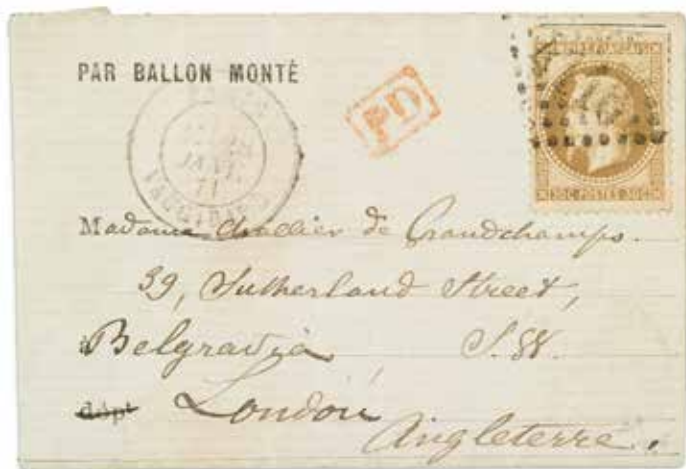 PAR BALLON MONTÉ
PD
PARIS
JANV.
71
VAUGIRARD
30C POSTES 30C
Madame Challier de Grandchamps.
39, Sutherland Street,
à Belgravia S.W.
dépt London
Angleterre.